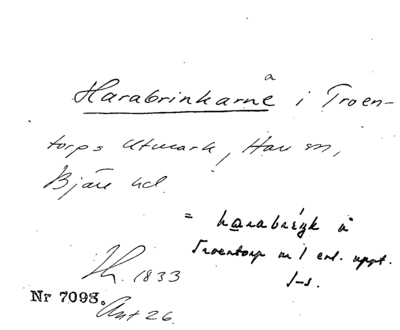 a
Harabrinkarne i Troen-
torps Utmark, Hov sn,
Bjäre hd.
= harabrıŋk
Troentorp nr 1 enl. uppt.
Lh. 1833
Nr 7098.
Ant 26